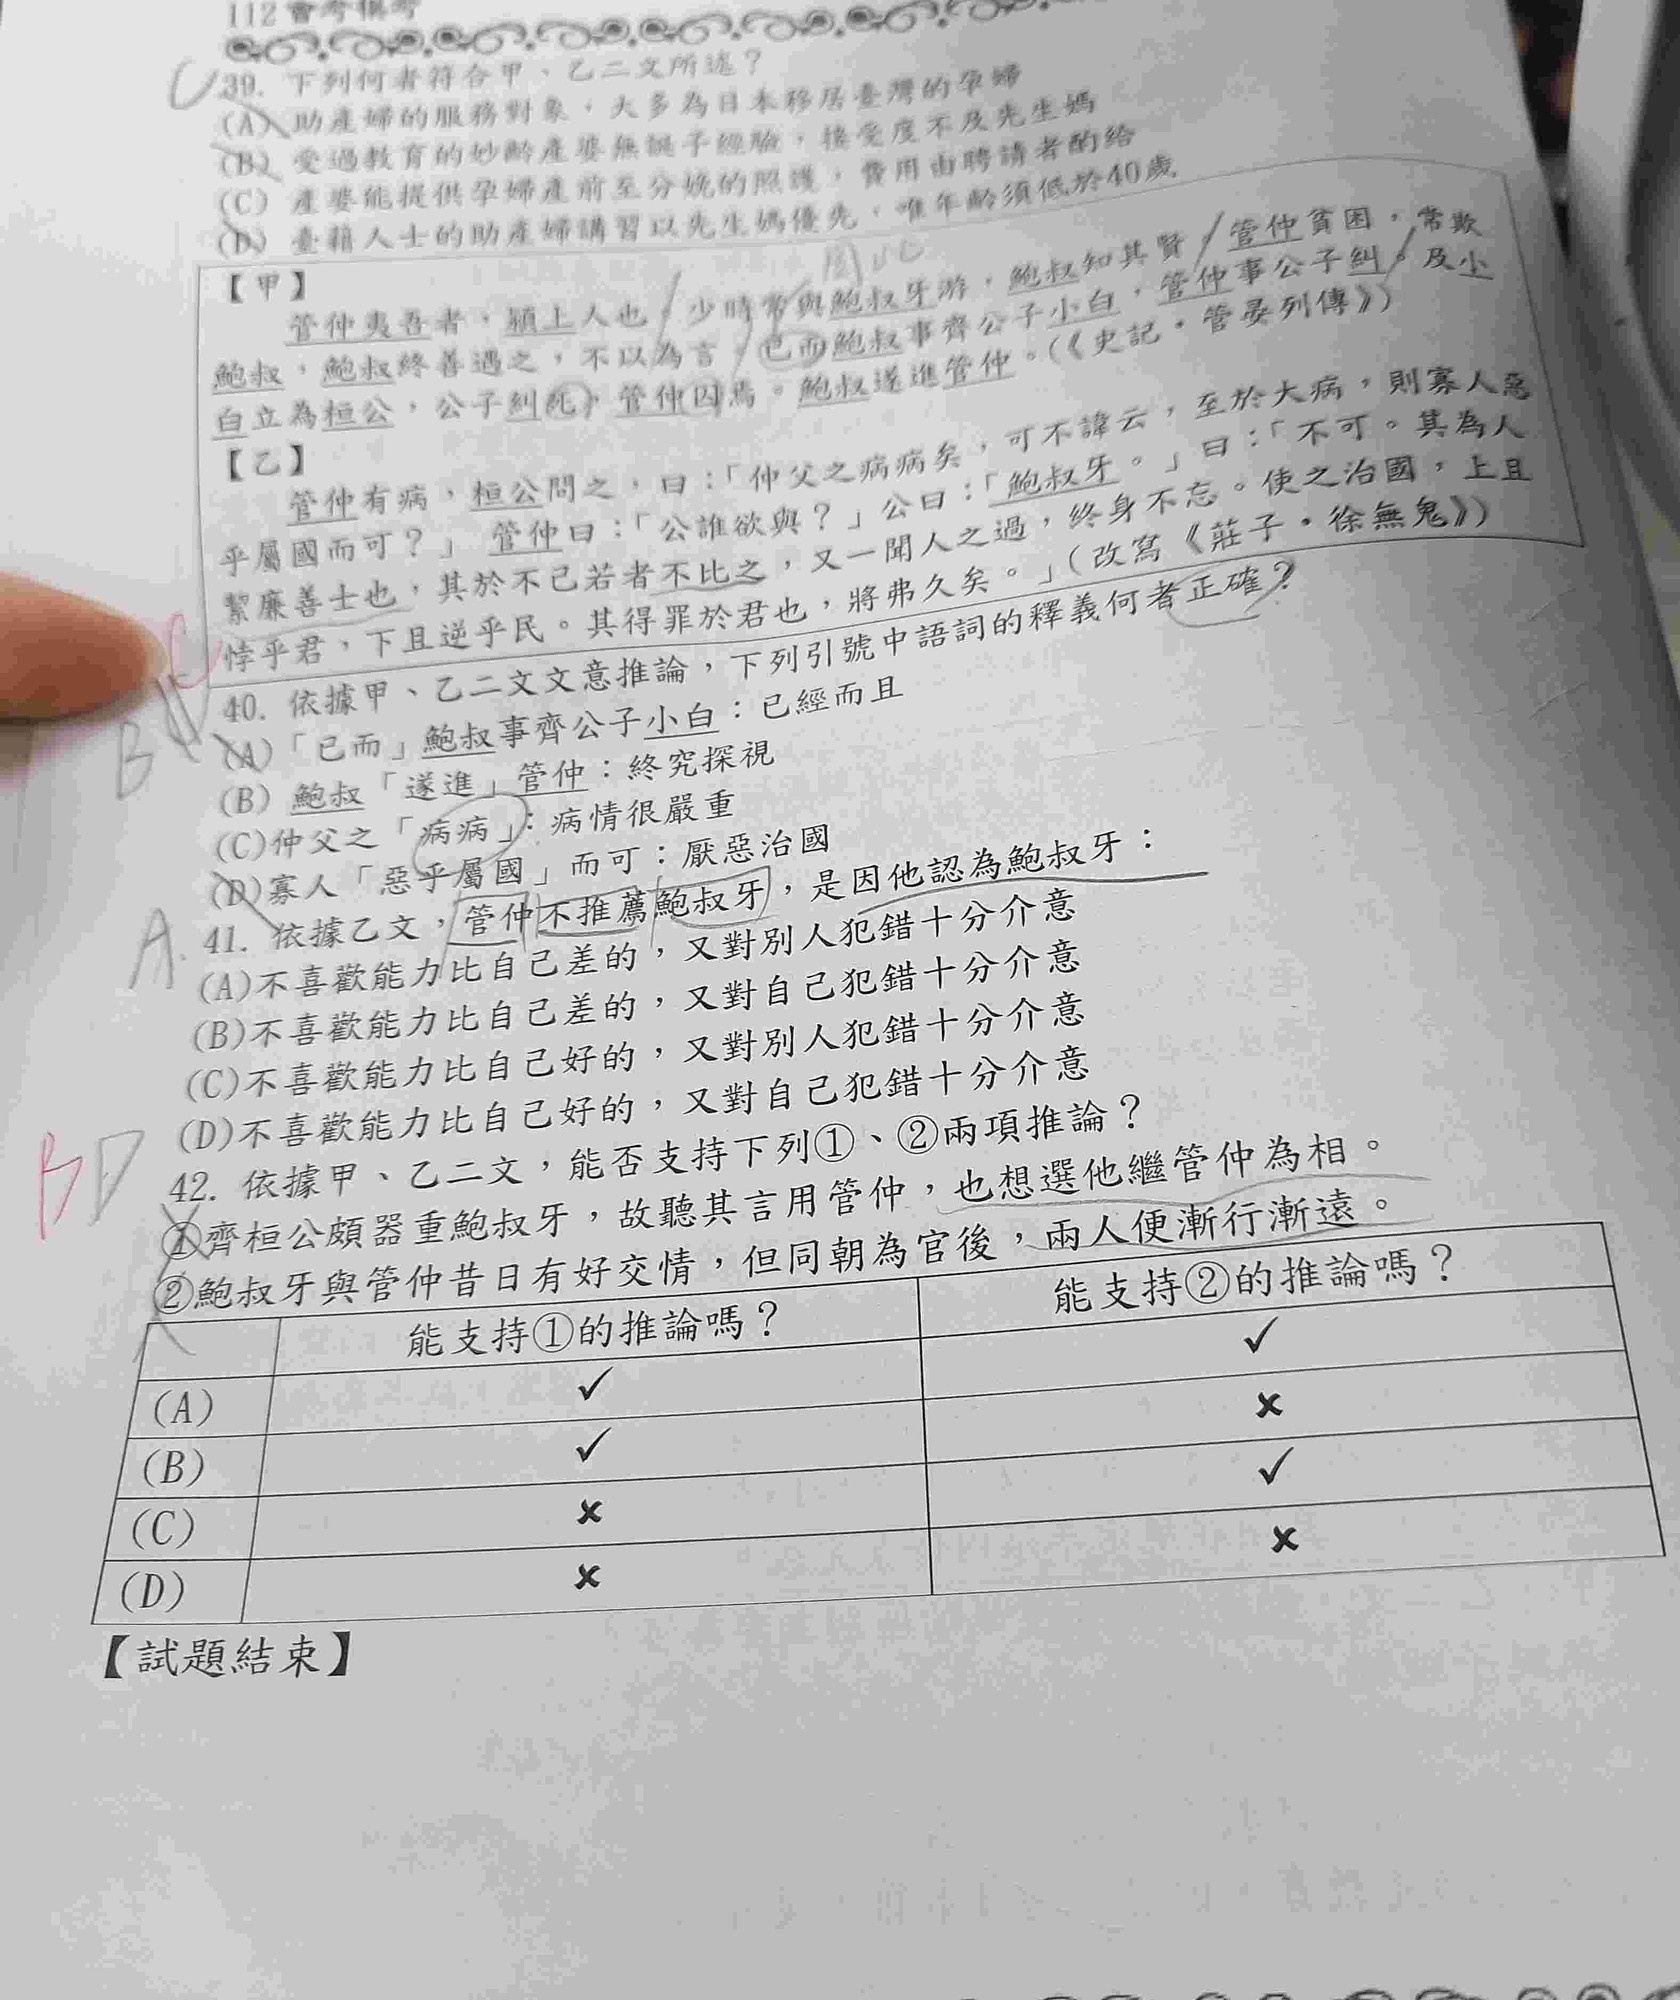 112會考模考
39. 下列何者符合甲、乙二文所述？
(A) 助產婦的服務對象，大多為日本移居臺灣的孕婦
(B) 受過教育的妙齡產婆無誕子經驗，接受度不及先生媽
(C) 產婆能提供孕婦產前至分娩的照護，費用由聘請者酌給
(D) 臺籍人士的助產婦講習以先生媽優先，唯年齡須低於40歲
【甲】
管仲夷吾者，潁上人也。少時常與鮑叔牙游，鮑叔知其賢。管仲貧困，常欺
鮑叔，鮑叔終善遇之，不以為言。已而鮑叔事齊公子小白，管仲事公子糾。及小
白立為桓公，公子糾死，管仲囚焉。鮑叔遂進管仲。(《史記·管晏列傳》)
【乙】
管仲有病，桓公問之，曰：「仲父之病病矣，可不諱云，至於大病，則寡人惡
乎屬國而可？」管仲曰：「公誰欲與？」公曰：「鮑叔牙。」曰：「不可。其為人
絜廉善士也，其於不己若者不比之，又一聞人之過，終身不忘。使之治國，上且
悖乎君，下且逆乎民。其得罪於君也，將弗久矣。」(改寫《莊子·徐無鬼》)
C
40. 依據甲、乙二文文意推論，下列引號中語詞的釋義何者正確？
(A)「已而」鮑叔事齊公子小白：已經而且
B
(B) 鮑叔「遂進」管仲：終究探視
(C)仲父之「病病」：病情很嚴重
(D)寡人「惡乎屬國」而可：厭惡治國
A.
41. 依據乙文，管仲不推薦鮑叔牙，是因他認為鮑叔牙：
(A)不喜歡能力比自己差的，又對別人犯錯十分介意
(B)不喜歡能力比自己差的，又對自己犯錯十分介意
(C)不喜歡能力比自己好的，又對別人犯錯十分介意
(D)不喜歡能力比自己好的，又對自己犯錯十分介意
BD
42. 依據甲、乙二文，能否支持下列①、②兩項推論？
①齊桓公頗器重鮑叔牙，故聽其言用管仲，也想選他繼管仲為相。
②鮑叔牙與管仲昔日有好交情，但同朝為官後，兩人便漸行漸遠。
能支持①的推論嗎？ 能支持②的推論嗎？
(A) ✓ ✓
(B) ✓ ✗
(C) ✗ ✓
(D) ✗ ✗
【試題結束】